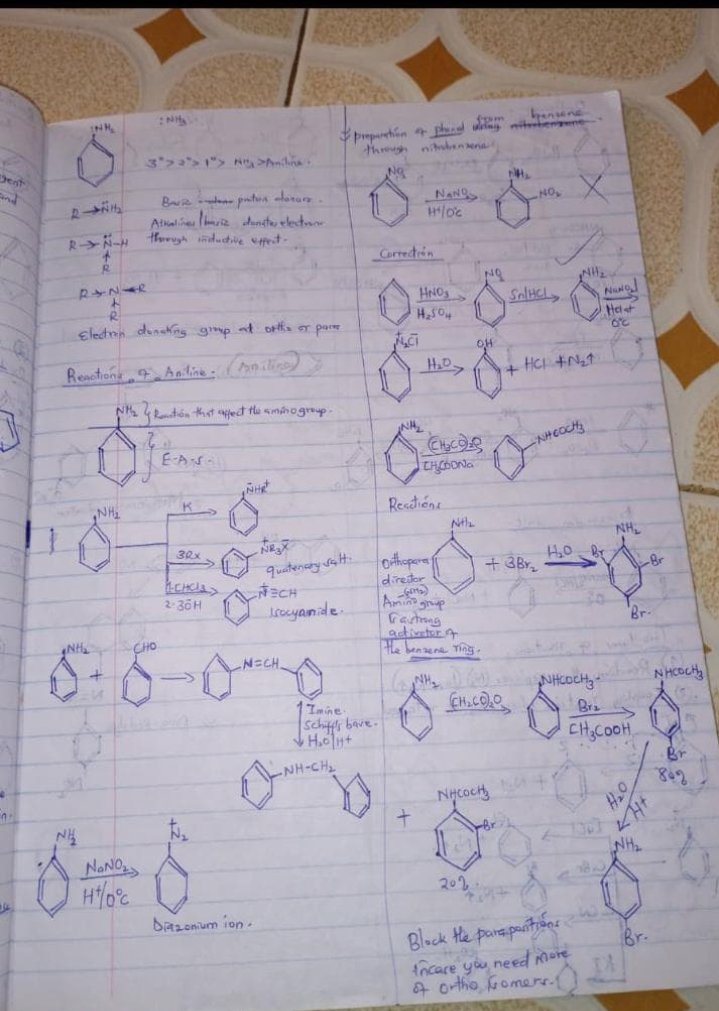 :NH₂ :NH₃
3° > 2° > 1° > NH₃ > Aniline.
R→N̈H₂ Basic proton donors.
Alkalines/basic donates electron
R→N̈-H through inductive effect.
R
R→N←R
R
Electron donating group at ortho or para
Reactions of Aniline. (Amitino)
NH₂ } Reaction that affect the amino group.
} E-A-S.
NH₂
R
N̈HR⁺
3Rx
N⁺R₃X̄
quatenary salt.
1.CHCl₃
2.3ŌH
N⁺≡CH
Isocyamide.
NH₂ + CHO → N=CH
Imine.
Schiff's base.
H₂O/H⁺
NH-CH₂
NH₂
NaNO₂
H⁺/0°c
N₂⁺
Diazonium ion.
preparation of phenol using nitrobenzene from benzene
through nitrobenzene.
NO₂
NaNO₂
H⁺/0°c
NH₂
NO₂
X
Correction
HNO₃
H₂SO₄
NO₂
Sn/HCl
NH₂
NaNO₂/
HCl at
0°c
N₂⁺Cl⁻
H₂O
OH
+ HCl + N₂↑
NH₂
(CH₃CO)₂O
CH₃COONa
NHCOCH₃
Reactions
NH₂ + 3Br₂ H₂O NH₂
Br
Br
Br.
Orthopara
director
(NH₂)
Amino group
is a strong
activator of
the benzene ring.
NH₂
(CH₂CO)₂O
NHCOCH₃.
Br₂
CH₃COOH
NHCOCH₃
Br
80%
+
NHCOCH₃
Br
20%
H₂O
H⁺
NH₂
Br.
Block the parapositions
incase you need more
of ortho isomers.